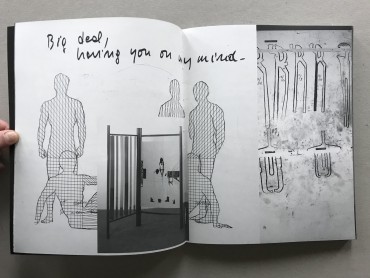 Big deal,
having you on my mind-